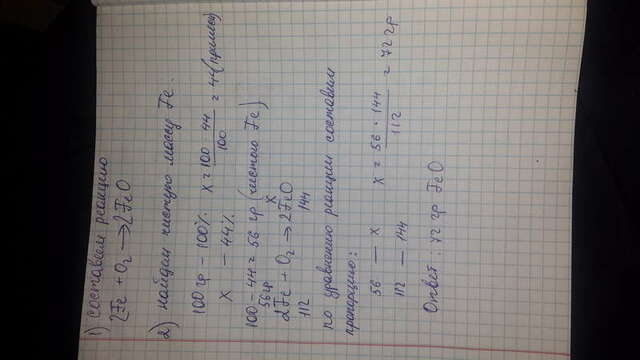 1) составим реакцию
2Fe + O₂ → 2FeO
2) найдем чистую массу Fe.
100 гр – 100% x = 100 · 44 / 100 = 44 (примеси)
x – 44%
100 – 44 = 56 гр (чистого Fe)
56гр x
2Fe + O₂ → 2FeO
112 144
по уравнению реакции составим
пропорцию:
56 — x x = 56 · 144 / 112 = 72 гр
112 — 144
Ответ: 72 гр FeO